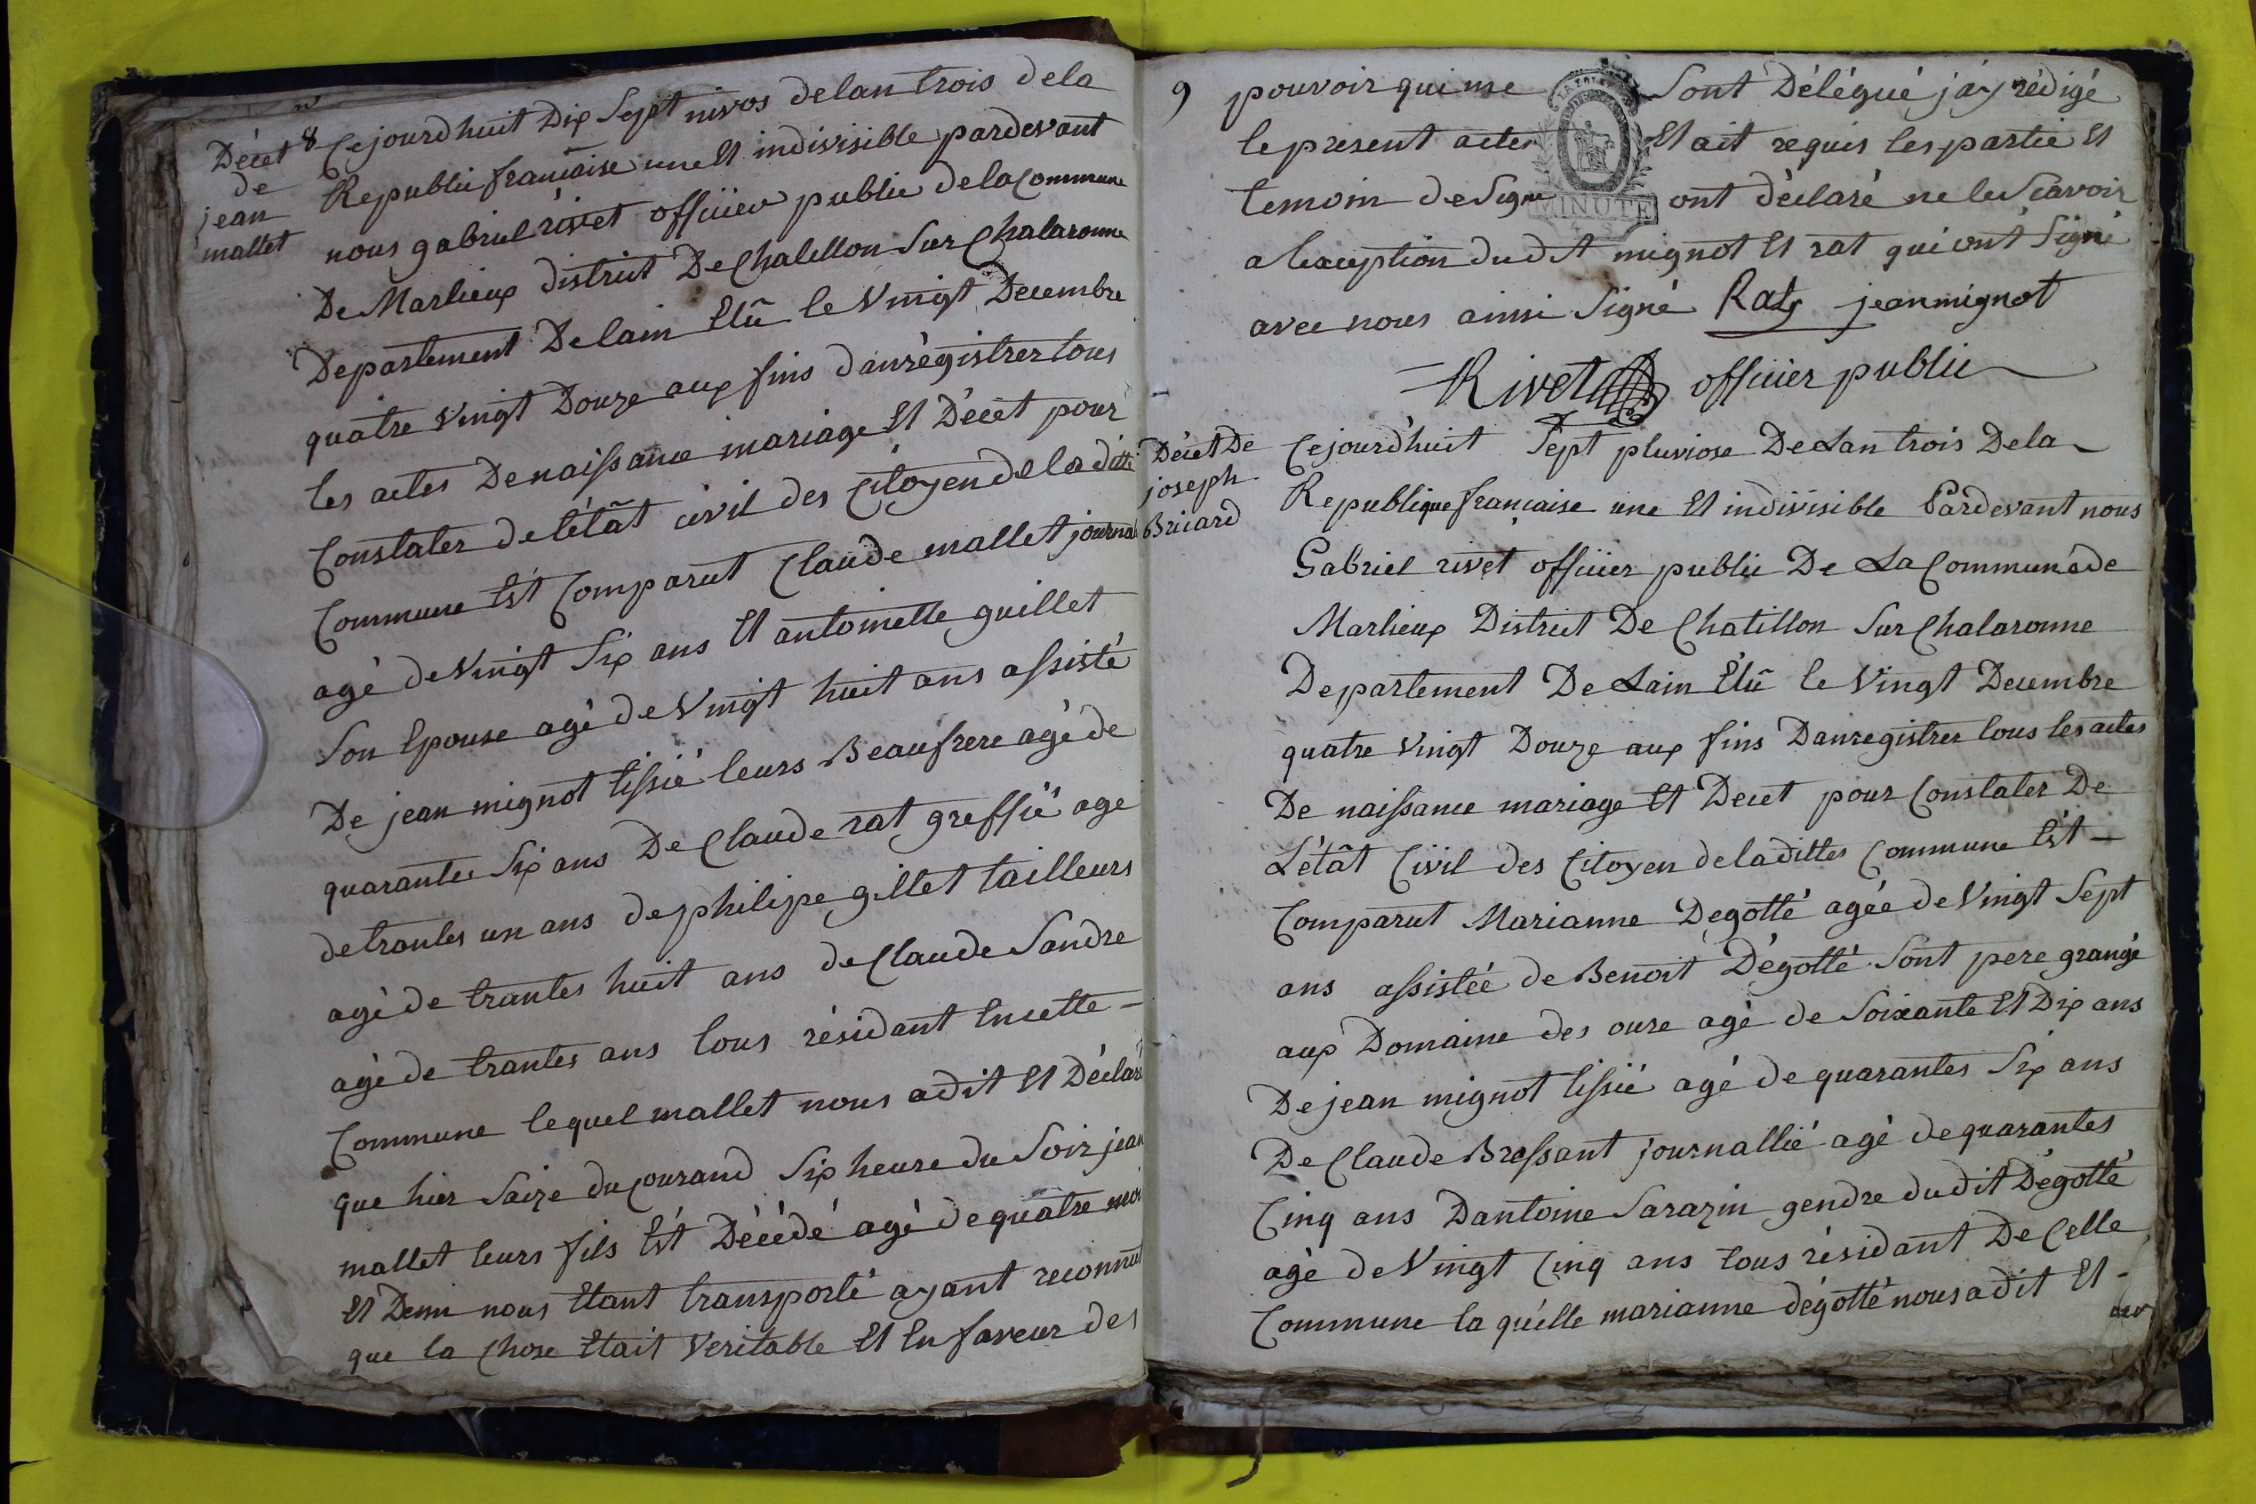 Décet 8
de
jean
mallet
Cejourdhuit Dix Sept nivos delan trois dela
Republic francaise une Et indivisible pardevant
nous gabriel rivet officier public dela Commune
De Marlieux district De Chalillon Sur Chalaronne
Departement Delain Elû le Vingt Decembre
quatre Vingt Douze aux fins danrégistrer tous
les actes De naissance mariage Et Décet pour
Constater de létât civil des Citoyen de la ditte
Commune Est Comparut Claude mallet journal
agé de Vingt Six ans Et antoinette guillet
Son Epouse agé de Vingt huit ans assisté
De jean mignot tissié leurs Beaufrere agé de
quarantes Six ans De Claude rat greffié age
detrantes un ans de philipe gillet tailleurs
agé de trantes huit ans de Claude Sandre
agé de trantes ans tous résidant En cette
Commune lequel mallet nous adit Et Déclaré
que hier Saize du Courand Six heure du Soir jean
mallet leurs fils Est Décédé agé de quatre moi
Et Demi nous Etant transporté ayant reconnut
que la Chose Etait Veritable Et En faveur des
9 pouvoir qui me Sont Délégué jáy rédigé
le présent actes Et ait requis les partie Et
temoin de Signe ont déclaré ne le Scavoir
MINUTE
a lexception dudt mignot Et rat qui ont Signé
avec nous ainsi Signé Rat jean mignot
Rivet officier public
Décet De
joseph
Bricard
Cejourd'huit Sept pluviose De Lan trois Dela
Republique francaise une Et indivisible Pardevant nous
Gabriel rivet officier public De La Commune de
Marlieux District De Chatillon Sur Chalaronne
Departement De Lain Elû le Vingt Decembre
quatre Vingt Douze aux fins Danregistrer tous les actes
De naissance mariage Et Decet pour Constater De
L'étât Civil des Citoyen de ladittes Commune Est
Comparut Marianne Degotté agée de Vingt Sept
ans assistée de Benoit Dégotté Sont pere grangé
aux Domaine des oure agé de Soixante Et Dix ans
De jean mignot tissié agé de quarantes Six ans
De Claude Bressant journallié agé de quarantes
Cinq ans Dantoine Sarazin gendre dudit Dégotté
agé de Vingt Cinq ans tous résidant De Celle
Commune la quélle marianne dégotté nous adit Et